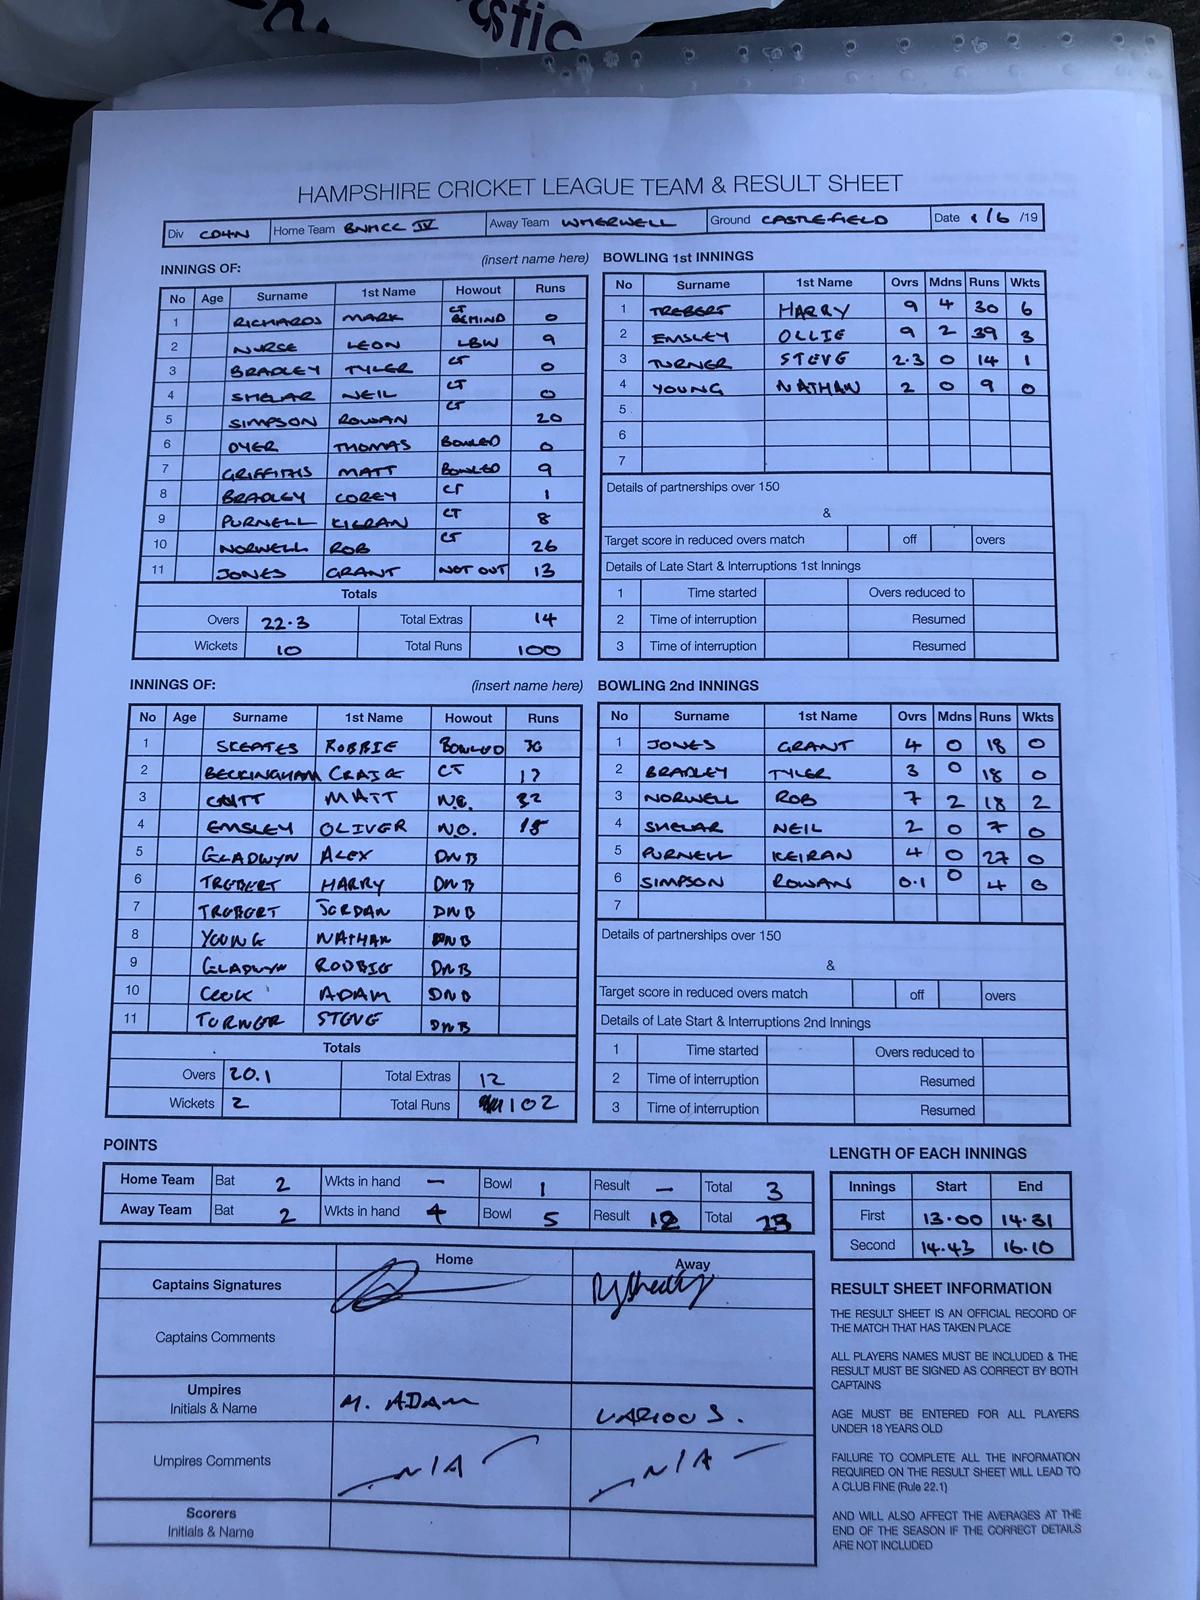 stic
HAMPSHIRE CRICKET LEAGUE TEAM & RESULT SHEET
Div CD4N Home Team BNHCC IV Away Team WHERWELL Ground CASTLEFIELD Date 1/6 /19
INNINGS OF: (insert name here)
No Age Surname 1st Name Howout Runs
1 RICHARDS MARK CT BEHIND 0
2 NURSE LEON LBW 9
3 BRADLEY TYLER CT 0
4 SHELAR NEIL CT 0
5 SIMPSON ROWAN CT 20
6 DYER THOMAS BOWLED 0
7 GRIFFITHS MATT BOWLED 9
8 BRADLEY COREY CT 1
9 PURNELL KIERAN CT 8
10 NORWELL ROB CT 26
11 JONES GRANT NOT OUT 13
Totals
Overs 22.3 Total Extras 14
Wickets 10 Total Runs 100
BOWLING 1st INNINGS
No Surname 1st Name Ovrs Mdns Runs Wkts
1 TREBERT HARRY 9 4 30 6
2 EMSLEY OLLIE 9 2 39 3
3 TURNER STEVE 2.3 0 14 1
4 YOUNG NATHAN 2 0 9 0
5
6
7
Details of partnerships over 150
&
Target score in reduced overs match off overs
Details of Late Start & Interruptions 1st Innings
1 Time started Overs reduced to
2 Time of interruption Resumed
3 Time of interruption Resumed
INNINGS OF: (insert name here)
No Age Surname 1st Name Howout Runs
1 SKEATES ROBBIE BOWLED
2 BECKINGHAM CRAIG CT 17
3 MATT N.O. 32
4 EMSLEY OLIVER N.O. 15
5 GLADWYN ALEX DNB
6 TREBERT HARRY DNB
7 TREBERT JORDAN DNB
8 YOUNG NATHAN DNB
9 GLADWYN ROBBIE DNB
10 COOK ADAM DNB
11 TURNER STEVE DNB
Totals
Overs 20.1 Total Extras 12
Wickets 2 Total Runs 102
BOWLING 2nd INNINGS
No Surname 1st Name Ovrs Mdns Runs Wkts
1 JONES GRANT 4 0 18 0
2 BRADLEY TYLER 3 0 18 0
3 NORWELL ROB 7 2 18 2
4 SHELAR NEIL 2 0 7 0
5 PURNELL KEIRAN 4 0 27 0
6 SIMPSON ROWAN 0.1 0 4 0
7
Details of partnerships over 150
&
Target score in reduced overs match off overs
Details of Late Start & Interruptions 2nd Innings
1 Time started Overs reduced to
2 Time of interruption Resumed
3 Time of interruption Resumed
POINTS
Home Team Bat 2 Wkts in hand - Bowl 1 Result - Total 3
Away Team Bat 2 Wkts in hand 4 Bowl 5 Result 12 Total 23
LENGTH OF EACH INNINGS
Innings Start End
First 13.00 14.31
Second 14.43 16.10
Home Away
Captains Signatures
Captains Comments
Umpires
Initials & Name M. ADAM VARIOUS.
Umpires Comments N/A N/A
Scorers
Initials & Name
RESULT SHEET INFORMATION
THE RESULT SHEET IS AN OFFICIAL RECORD OF
THE MATCH THAT HAS TAKEN PLACE
ALL PLAYERS NAMES MUST BE INCLUDED & THE
RESULT MUST BE SIGNED AS CORRECT BY BOTH
CAPTAINS
AGE MUST BE ENTERED FOR ALL PLAYERS
UNDER 18 YEARS OLD
FAILURE TO COMPLETE ALL THE INFORMATION
REQUIRED ON THE RESULT SHEET WILL LEAD TO
A CLUB FINE (Rule 22.1)
AND WILL ALSO AFFECT THE AVERAGES AT THE
END OF THE SEASON IF THE CORRECT DETAILS
ARE NOT INCLUDED